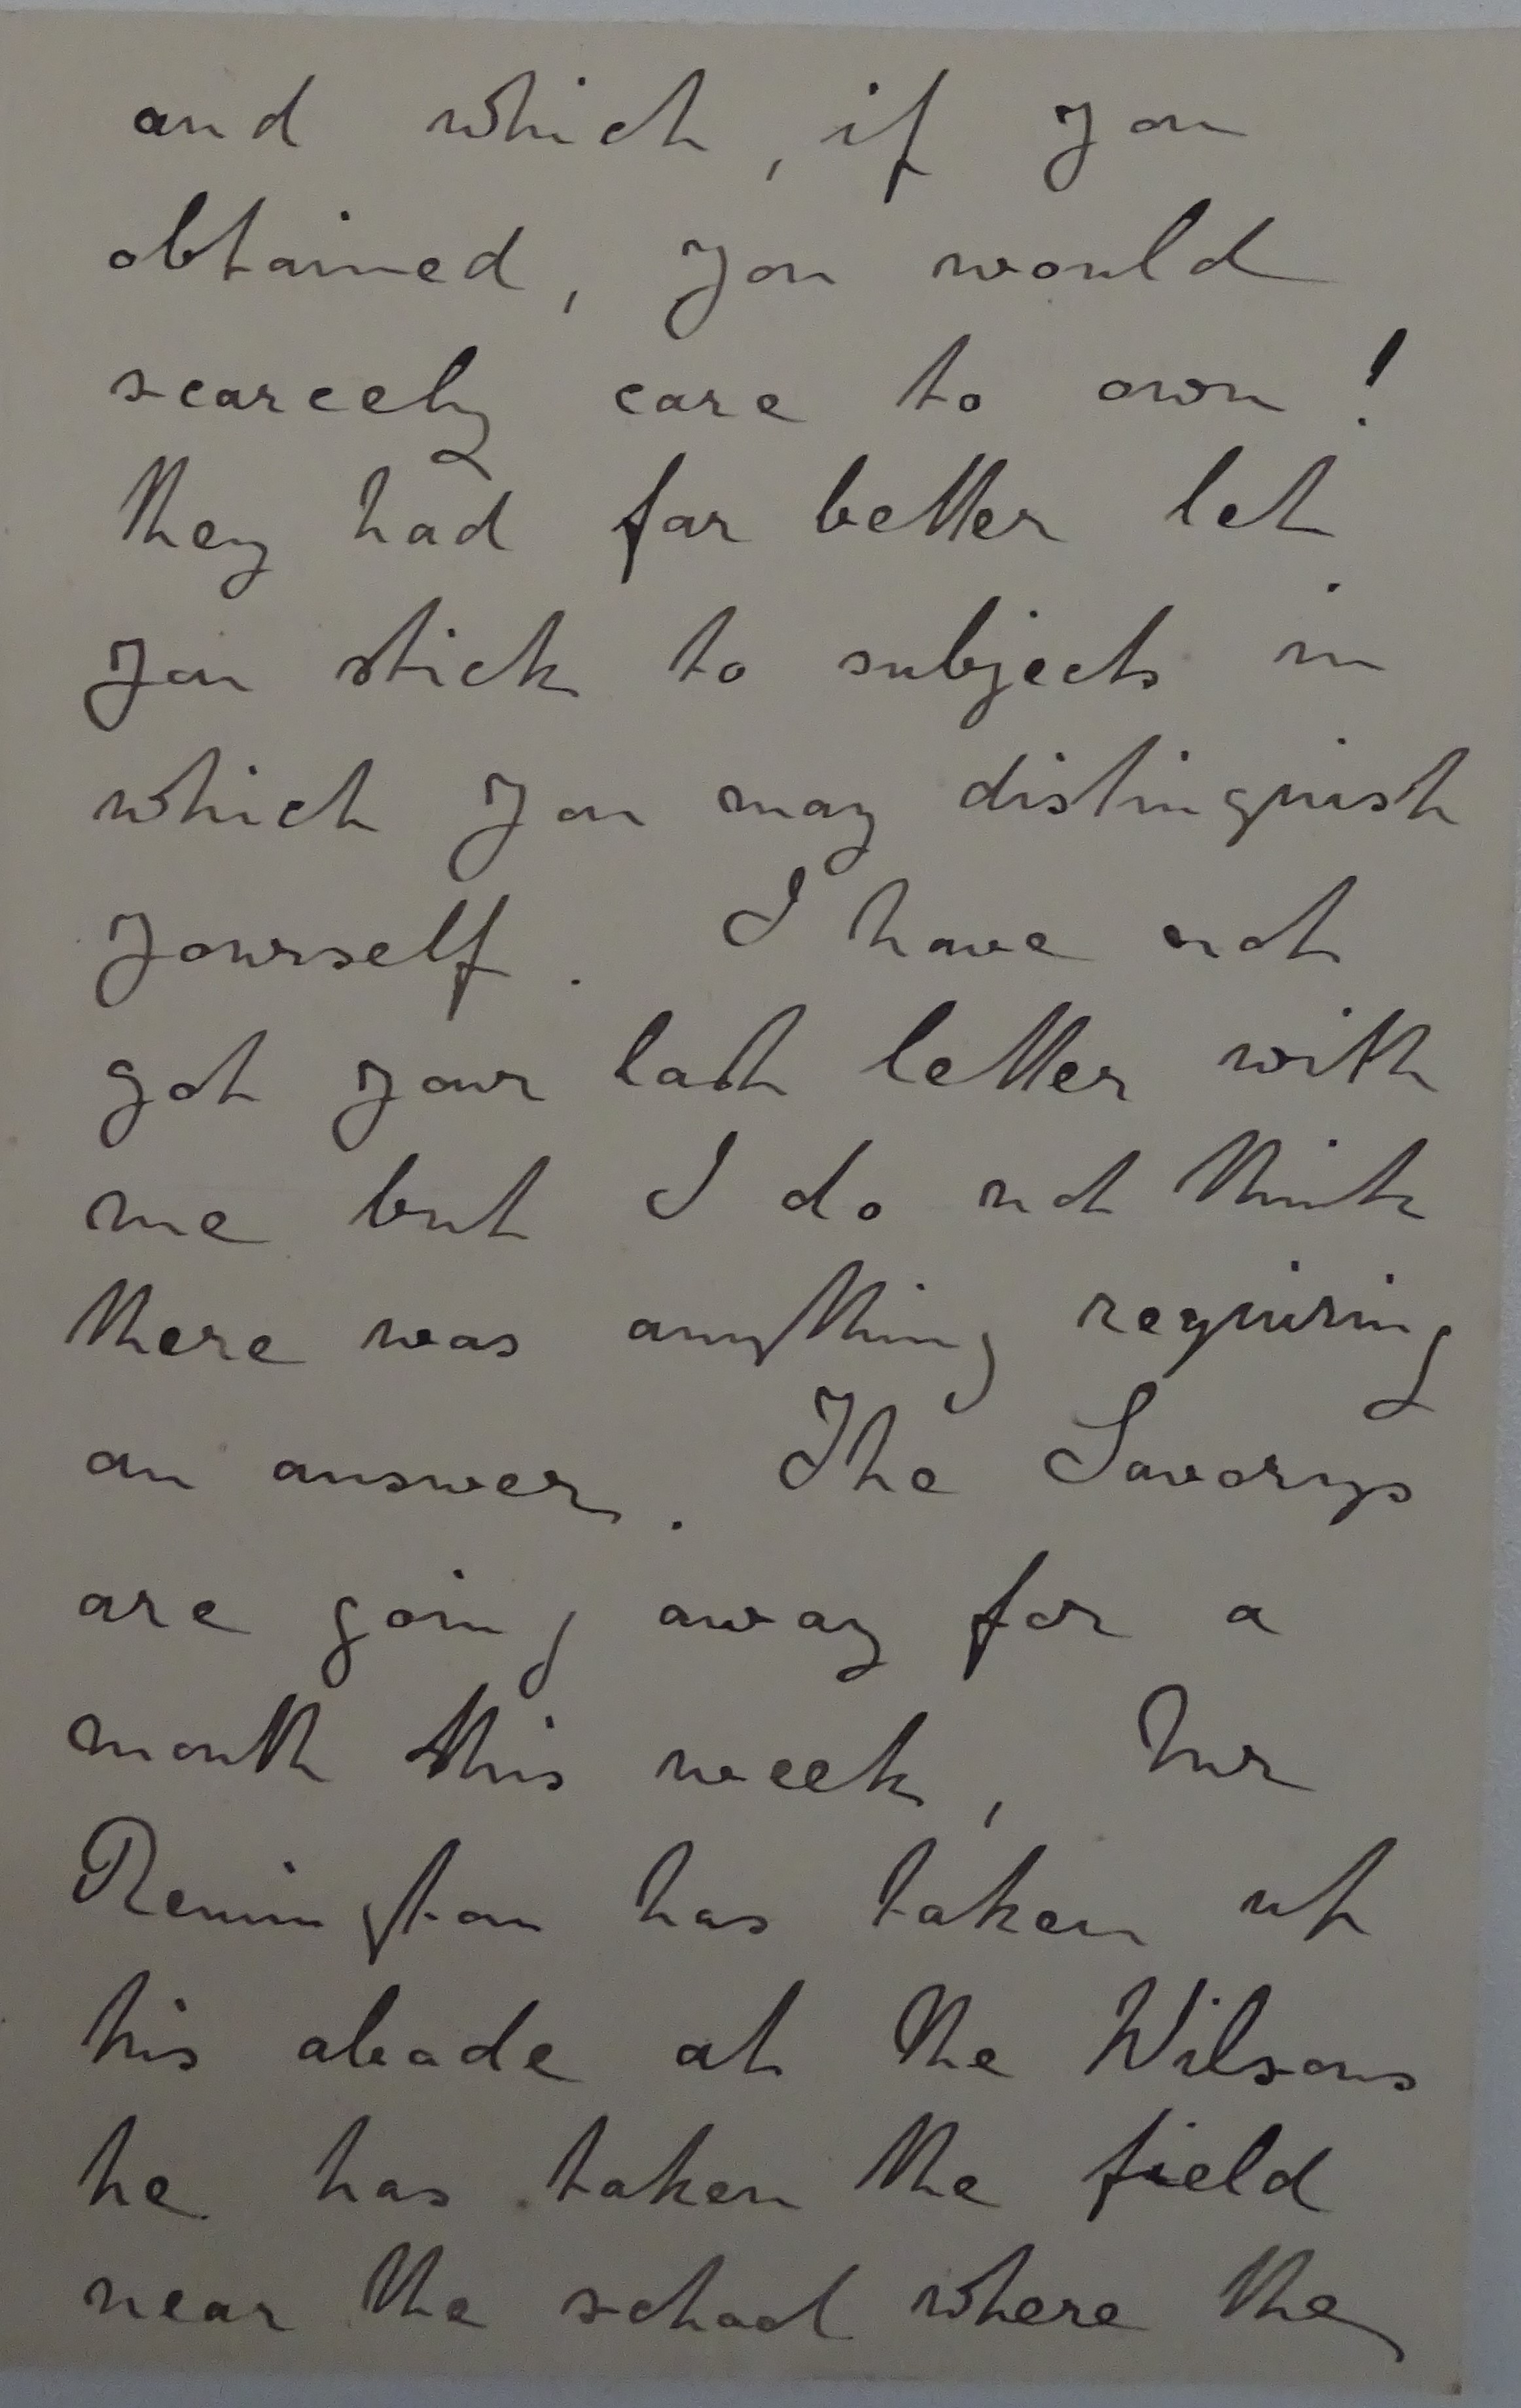 and which, if you
obtained, you would
scarcely care to own!
they had far better let
you stick to subjects in
which you may distinguish
yourself. I have not
got your last letter with
me but I do not think
there was anything requiring
an answer. The Savorys
are going away for a
month this week, Mr
Remington has taken up
his abode at the Wilsons
he has taken the field
near the school where the